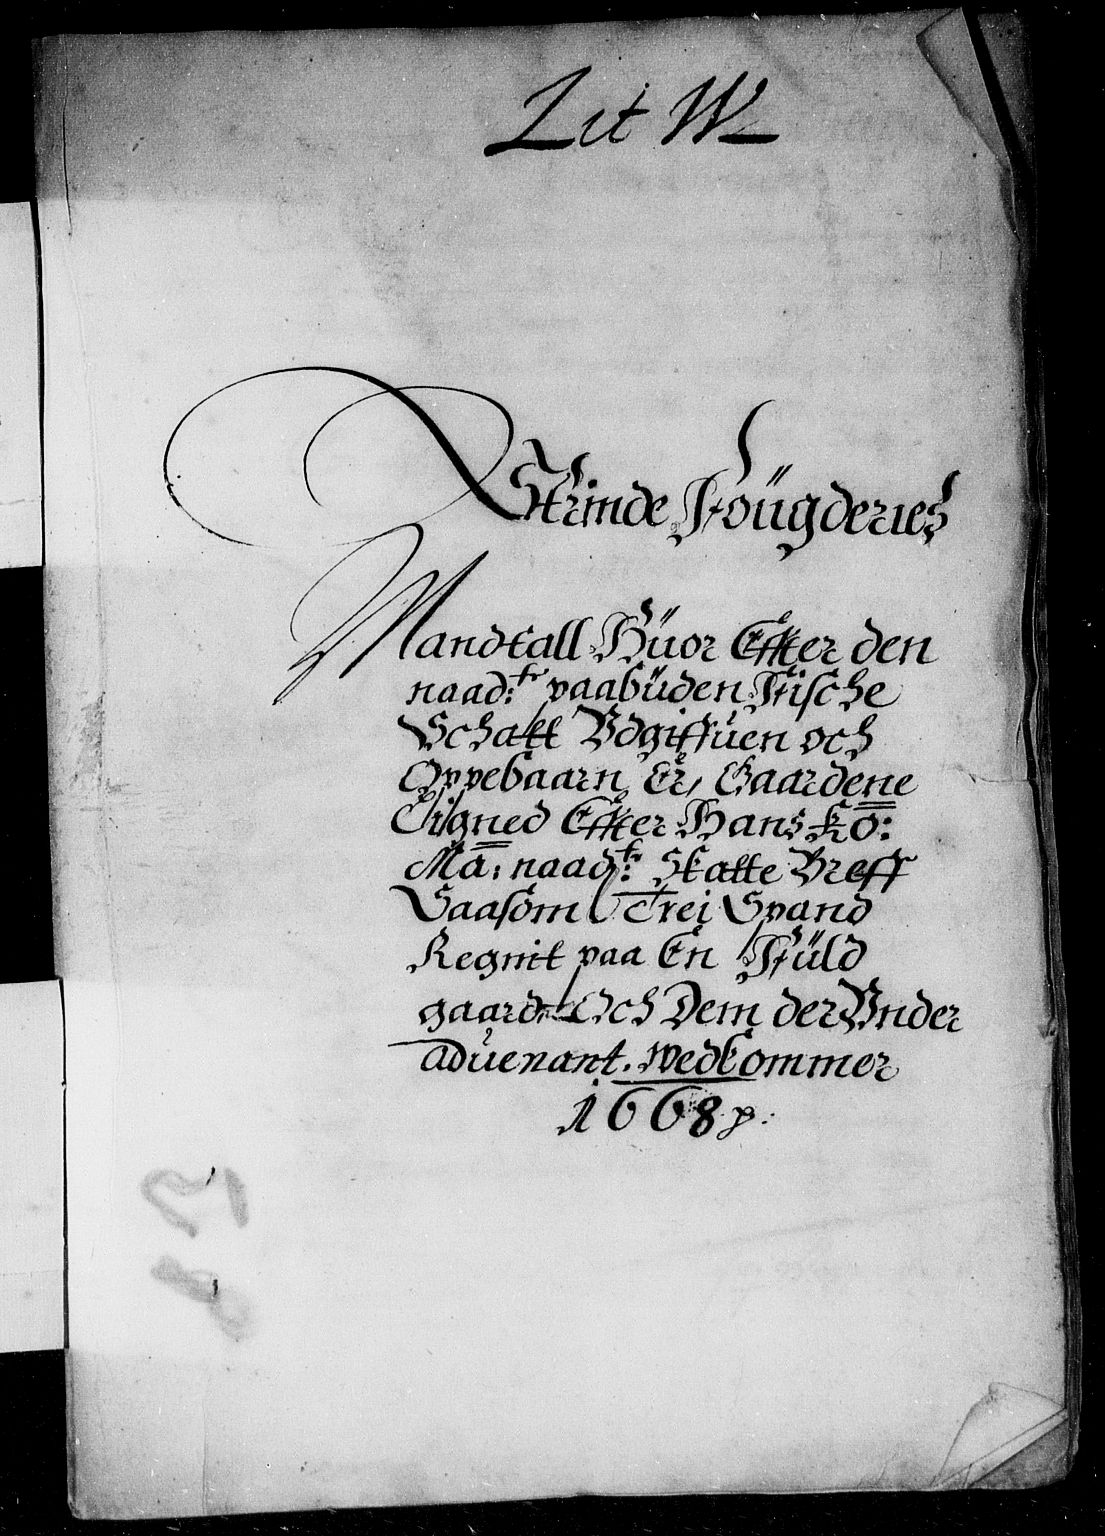 Lit W
Strinde Fougderies
Mandtall Huor Effter den
naad:te paabuden Frische
Schatt Vdgiffuen och
Oppebaarn Er, Gaardene
Ligned Effter Hans Ko:
Ma: naad:te Skatte Breff
Saasom Trei Spand
Regnit paa En Fuld
gaard, Och Dem der Vnder
aduenant. wedkommer
1668 p: